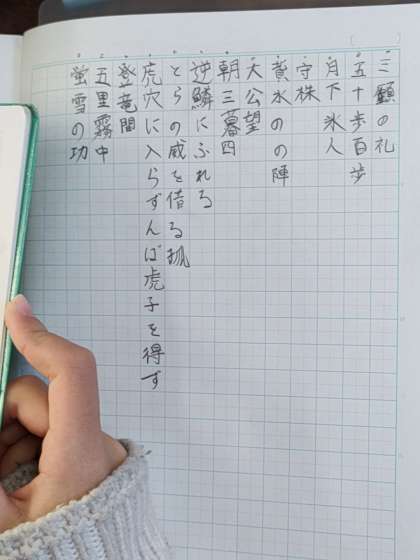 三顧の礼
五十歩百歩
月下氷人
守株
背水のの陣
太公望
朝三暮四
逆鱗にふれる
とらの威を借る狐
虎穴に入らずんば虎子を得ず
登竜間
五里霧中
蛍雪の功